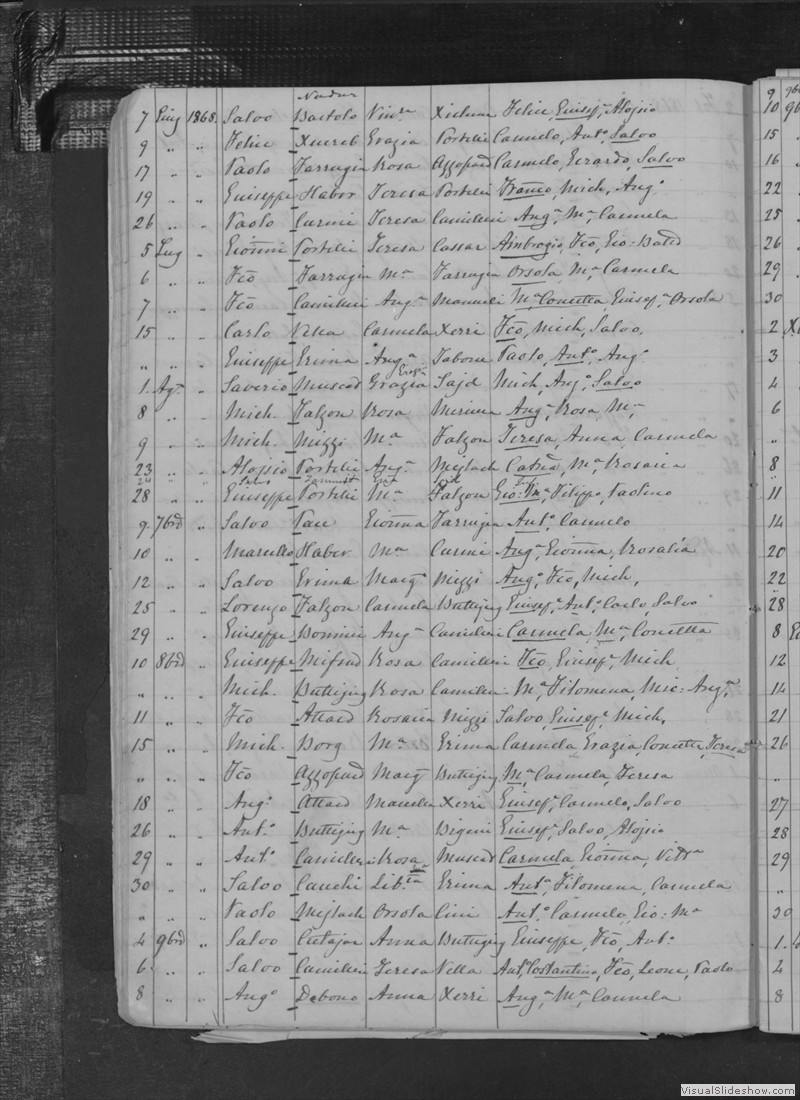 Nadur
7 Giug 1868. Salvo Bartolo Vin:ra Xicluna Felice, Giusep.e Alojsio
9 " " Felice Xuereb Grazia Portelli Carmelo, Ant.o Salvo
17 " " Paolo Farrugia Rosa Azzopard Carmelo, Gerardo, Salvo
19 " " Giuseppe Haber Teresa Portelli Franco, Mich, Ang.o
26 " " Paolo Curmi Teresa Camilleri Ang.a M.a Carmela
5 Lug " Giovni Portelli Teresa Cassar Ambrogio, Fco, Gio: Batta
6 " " Fco Farrugia M.a Farrugia Orsola, M.a Carmela
7 " " Fco Camilleri Ang.a Manueli M.a Concetta, Giusep.a Orsola
15 " " Carlo Vella Carmela Xerri Fco, Mich, Salvo,
" " " Giuseppe Grima Ang.a Tabone Paolo, Ant.o Ang.o
1. Ag.o " Saverio Muscad Grazia Sajd Mich, Ang.o Salvo
8 " " Mich. Falzon Rosa Ang.a Rosa M.a
9 " " Mich. Mizzi M.a Falzon Teresa, Anna, Carmela
23 " " Alojsio Portelli Ang.a Mejlach M.a Rosaria
28 " " Giuseppe Portelli M.a Falzon Gio: M.a Filippo, Paolino
9 7bre " Salvo Pace Giovna Farrugia Ant.o Carmelo
10 " " Marcello Haber M.a Curmi Ang.a Giovna, Rosalia
12 " " Salvo Grima Marg.a Mizzi Ang.o Fco, Mich,
25 " " Lorenzo Falzon Carmela Buttigieg Giusep.e Ant.o Carlo, Salvo
29 " " Giuseppe Bonnici Ang.a Camilleri Carmela, M.a Concetta
10 8bre " Giuseppe Mifsud Rosa Camilleri Fco, Giusep.e Mich
" " " Mich. Buttigieg Rosa Camilleri M.a Filomena, Mic: Ang.a
11 " " Fco Attard Rosaria Mizzi Salvo, Giusep.e Mich,
15 " " Mich. Borg M.a Grima Carmela Grazia Concetta, Teresa
" " " Fco Azzopard Marg.a Buttigieg M.a Carmela, Teresa
18 " " Ang.o Attard Xerri Giusep.e Carmelo, Salvo
26 " " Ant.o Buttigieg M.a Bigeni Giusep.e Salvo, Alojsio
29 " " Ant.o Camilleri Rosa Muscad Carmela Giovna, Vitt.a
30 " " Salvo Cauchi Lib:ta Grima Ant.a Filomena, Carmela
" " " Paolo Mejlach Orsola Cini Ant.o Carmelo, Gio: M.a
4 9bre " Salvo Cutajar Anna Buttigieg Giuseppe, Fco, Ant.o
6 " " Salvo Camilleri Teresa Vella Ant.o Costantino, Fco, Leone, Paolo
8 " " Ang.o Debono Anna Xerri Ang.a M.a Carmela
9
10
15
16
22
25
26
29
30
2
3
4
6
"
8
11
14
20
22
28
8
12
14
21
26
"
27
28
29
"
30
1.
4
8
VisualSlideshow.com